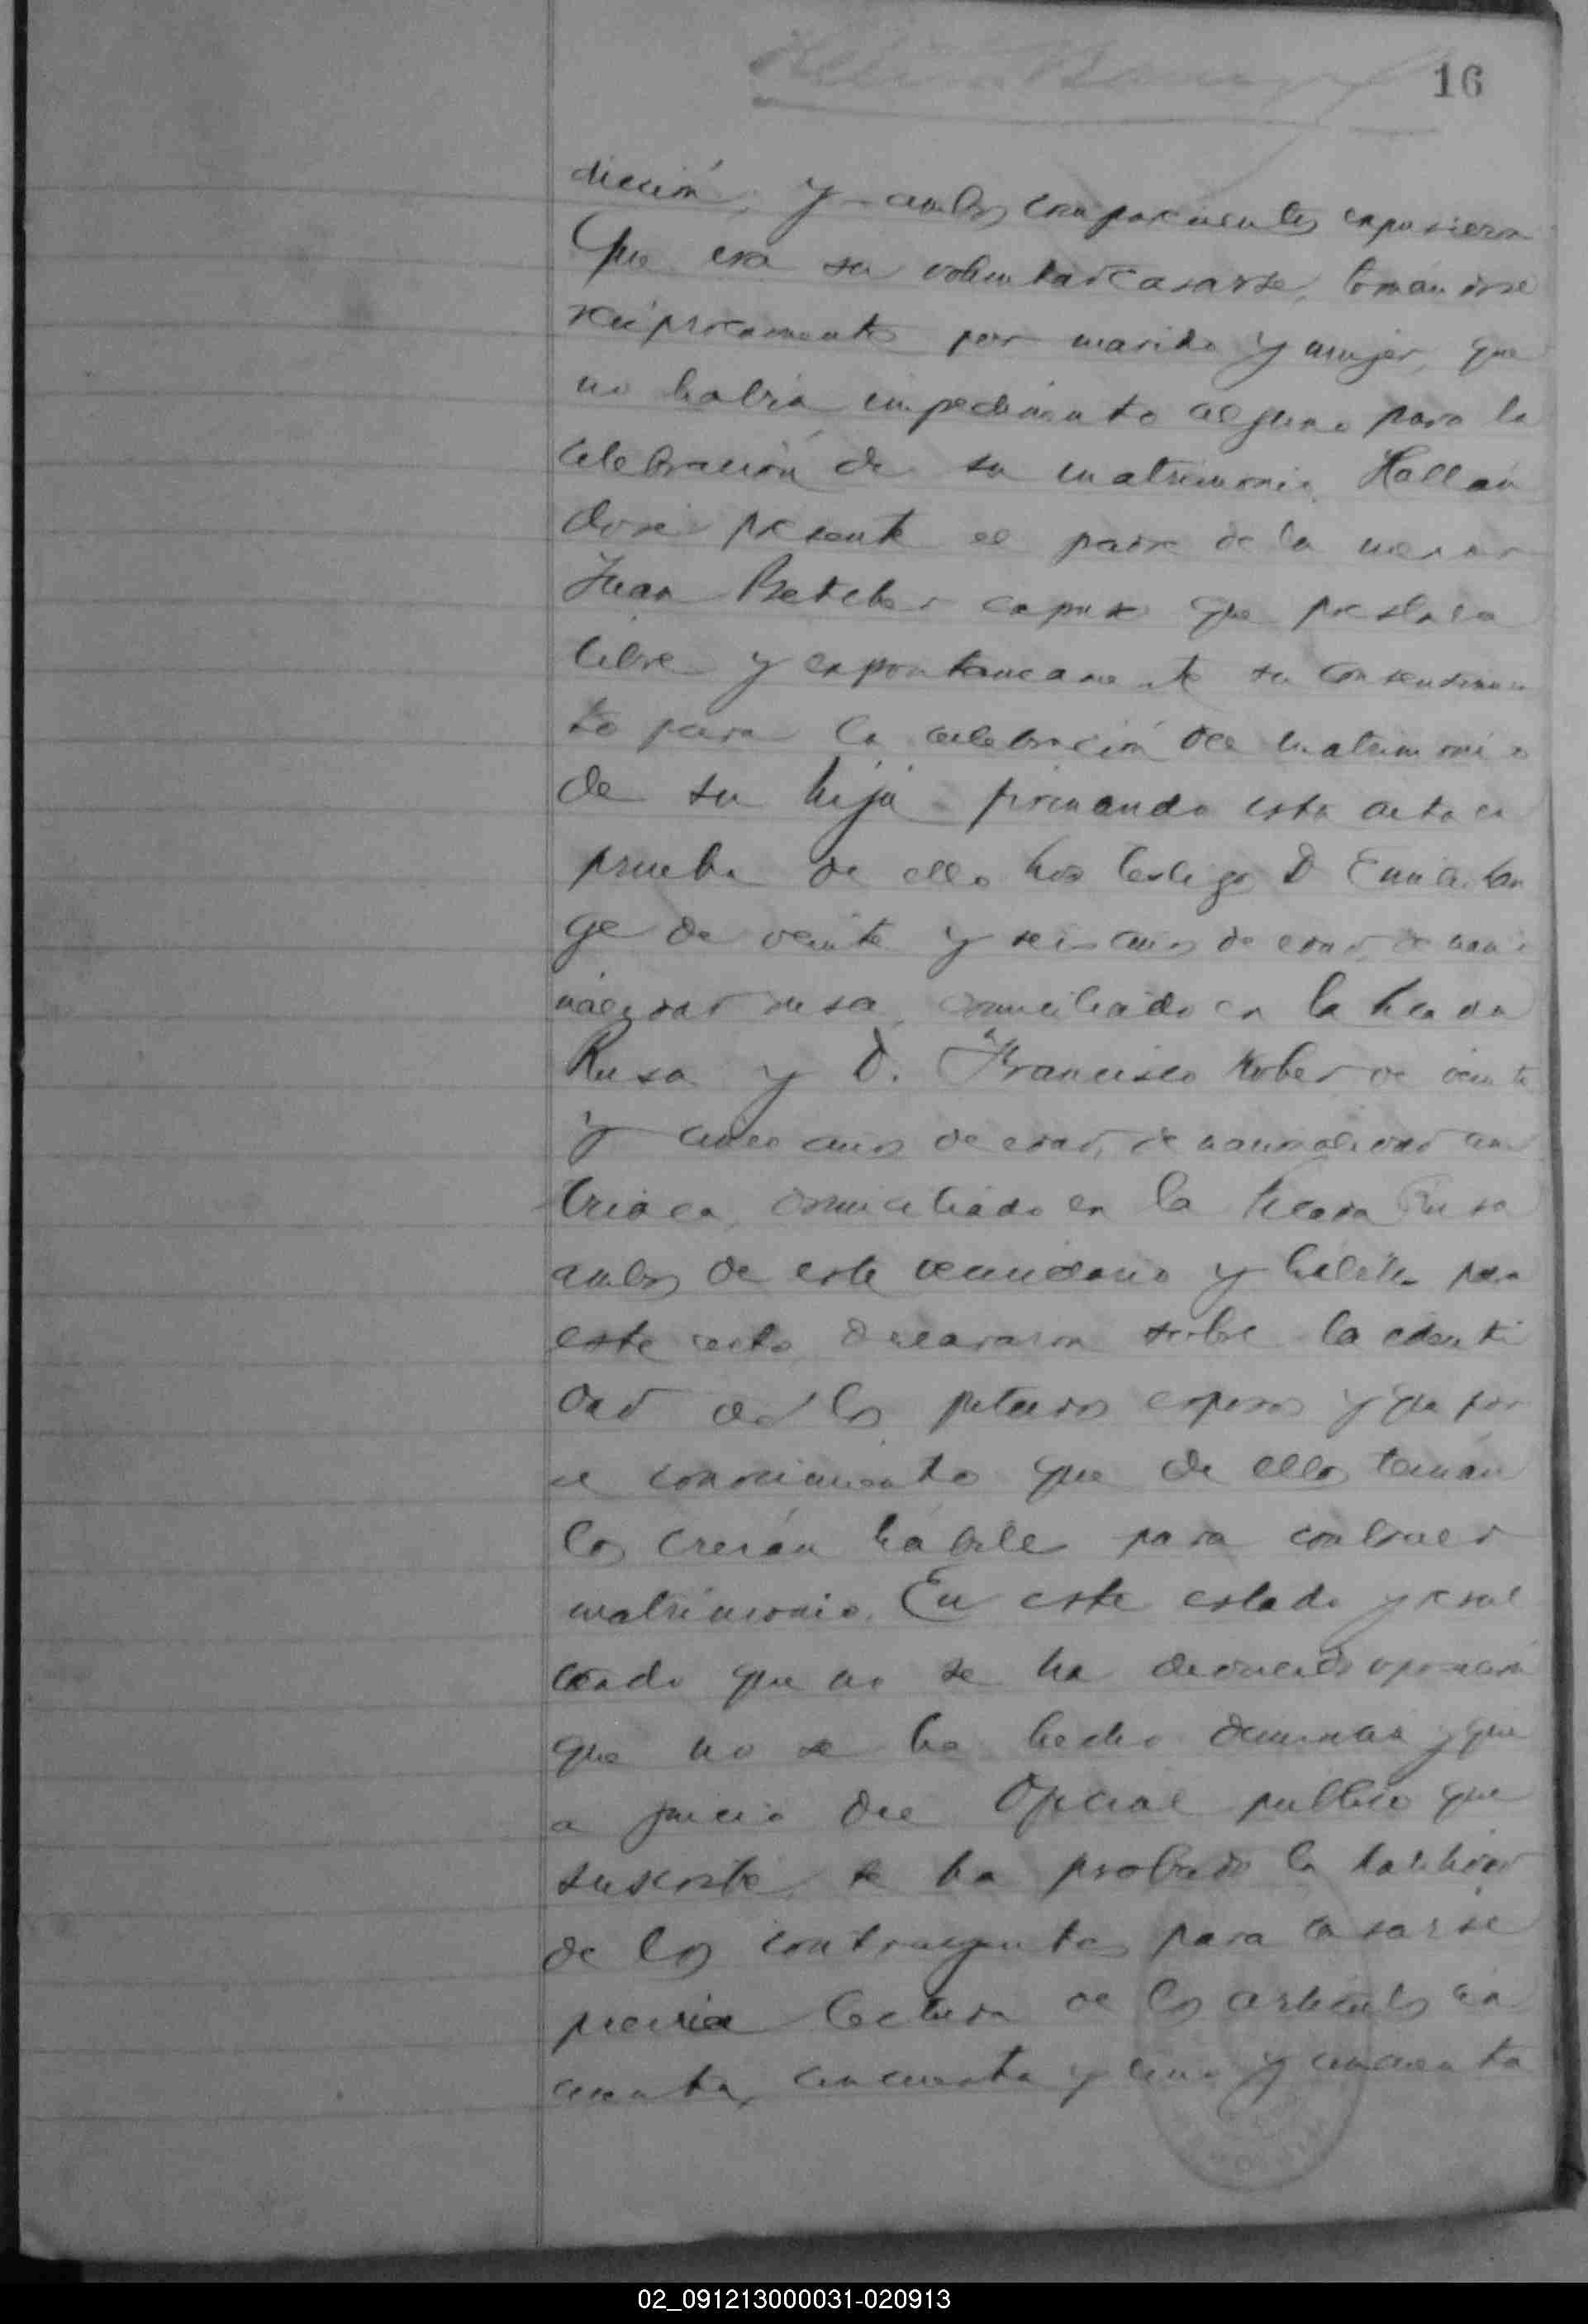 16
dicción, y ambos comparecientes expusieron
Que era su voluntad casarse, tomándose
recíprocamente por marido y mujer, que
no había impedimento alguno para la
celebración de su matrimonio. Hallan
dose presente el padre de la menor
Juan Betcher expuso que prestaba
libre y expontaneamente su consentimien
to para la celebración del matrimonio
de su hija firmando esta acta en
prueba de ello. Los testigos D Emilio Lan
ge de veinte y seis años de edad, de nacio
nalidad rusa, domiciliado en la Aldea
Rusa y D. Francisco Kober de veinte
y cinco años de edad, de nacionalidad aus
triaca, domiciliado en la Aldea Rusa
ambos de este vecindario y hábiles para
este acto, declararon sobre la identi
dad de los futuros esposos y que por
el conocimiento que de ellos tenían
los creían hábiles para contraer
matrimonio. En este estado y resul
tando que no se ha deducido oposición
que no se ha hecho denuncia y que
a juicio del Oficial publico que
suscribe, se ha probado la habilidad
de los contrayentes para casarse
previa lectura de los articulos cin
cuenta, cincuenta y uno y cincuenta
02_091213000031-020913